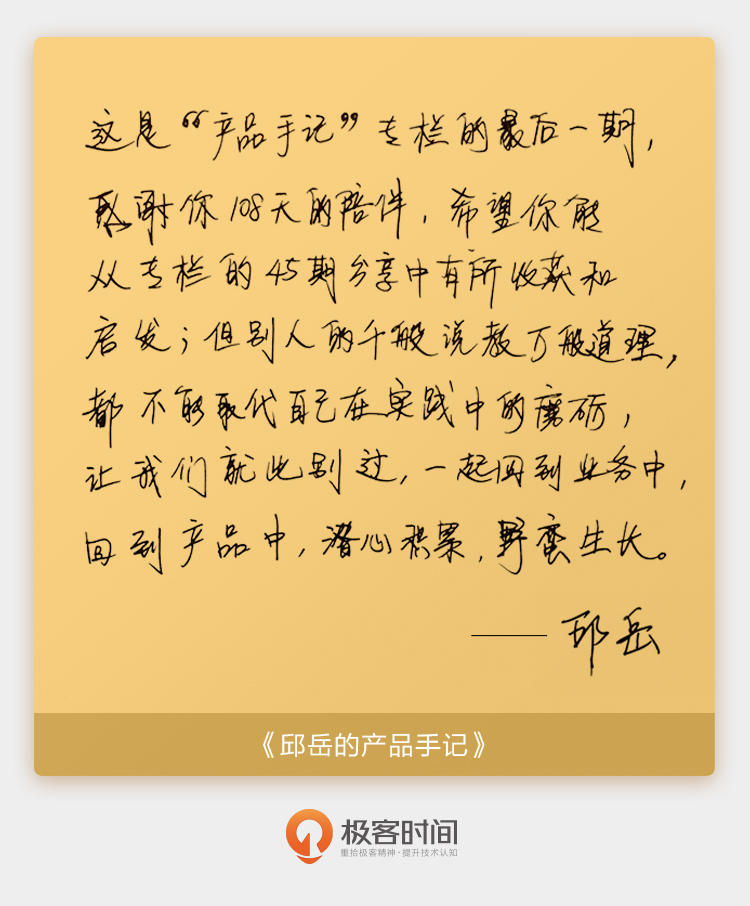 这是“产品手记”专栏的最后一期，
感谢你108天的陪伴，希望你能
从专栏的45期分享中有所收获和
启发；但别人的千般说教万般道理，
都不能取代自己在实践中的磨砺，
让我们就此别过，一起回到业务中，
回到产品中，潜心积累，野蛮生长。
—— 邱岳
《邱岳的产品手记》
极客时间
重拾极客精神·提升技术认知